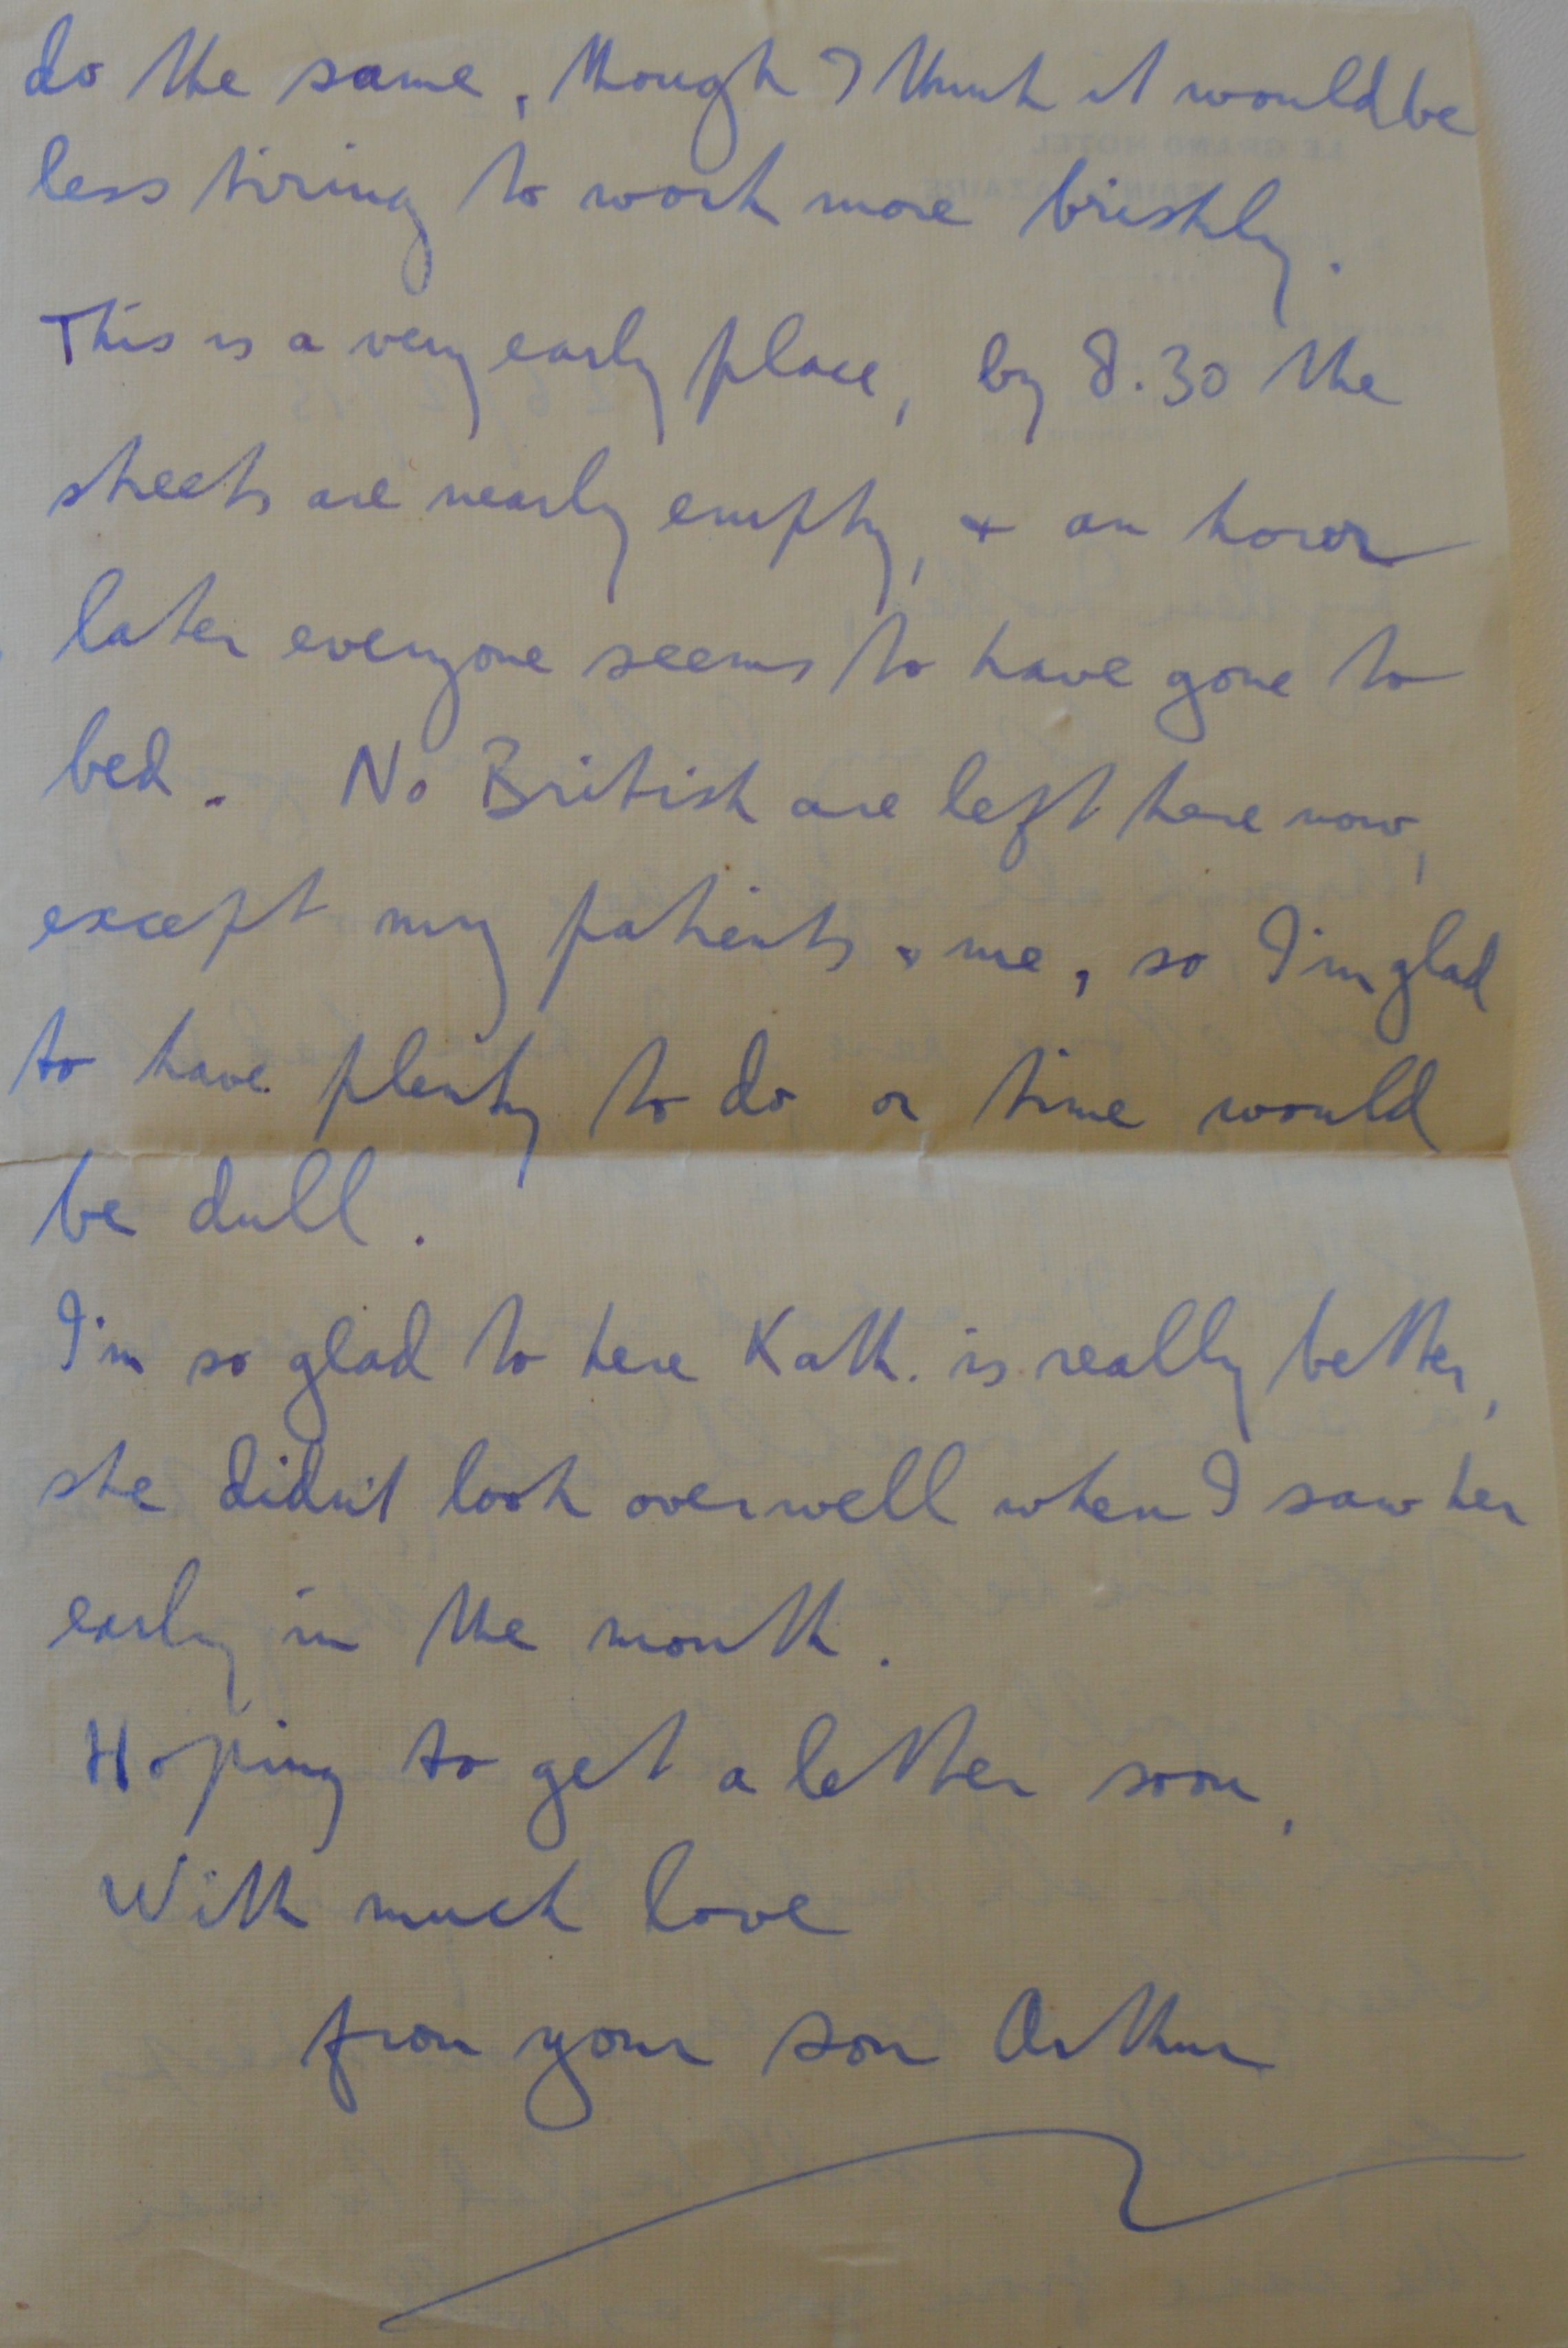 do the same, though I think it would be
less tiring to work more briskly.
This is a very early place, by 8.30 the
streets are nearly empty, + an hour
later everyone seems to have gone to
bed. No British are left here now,
except my patients + me, so I'm glad
to have plenty to do or time would
be dull.
I'm so glad to here Kath. is really better,
she didn't look over well when I saw her
early in the month.
Hoping to get a letter soon,
With much love
from your son Arthur